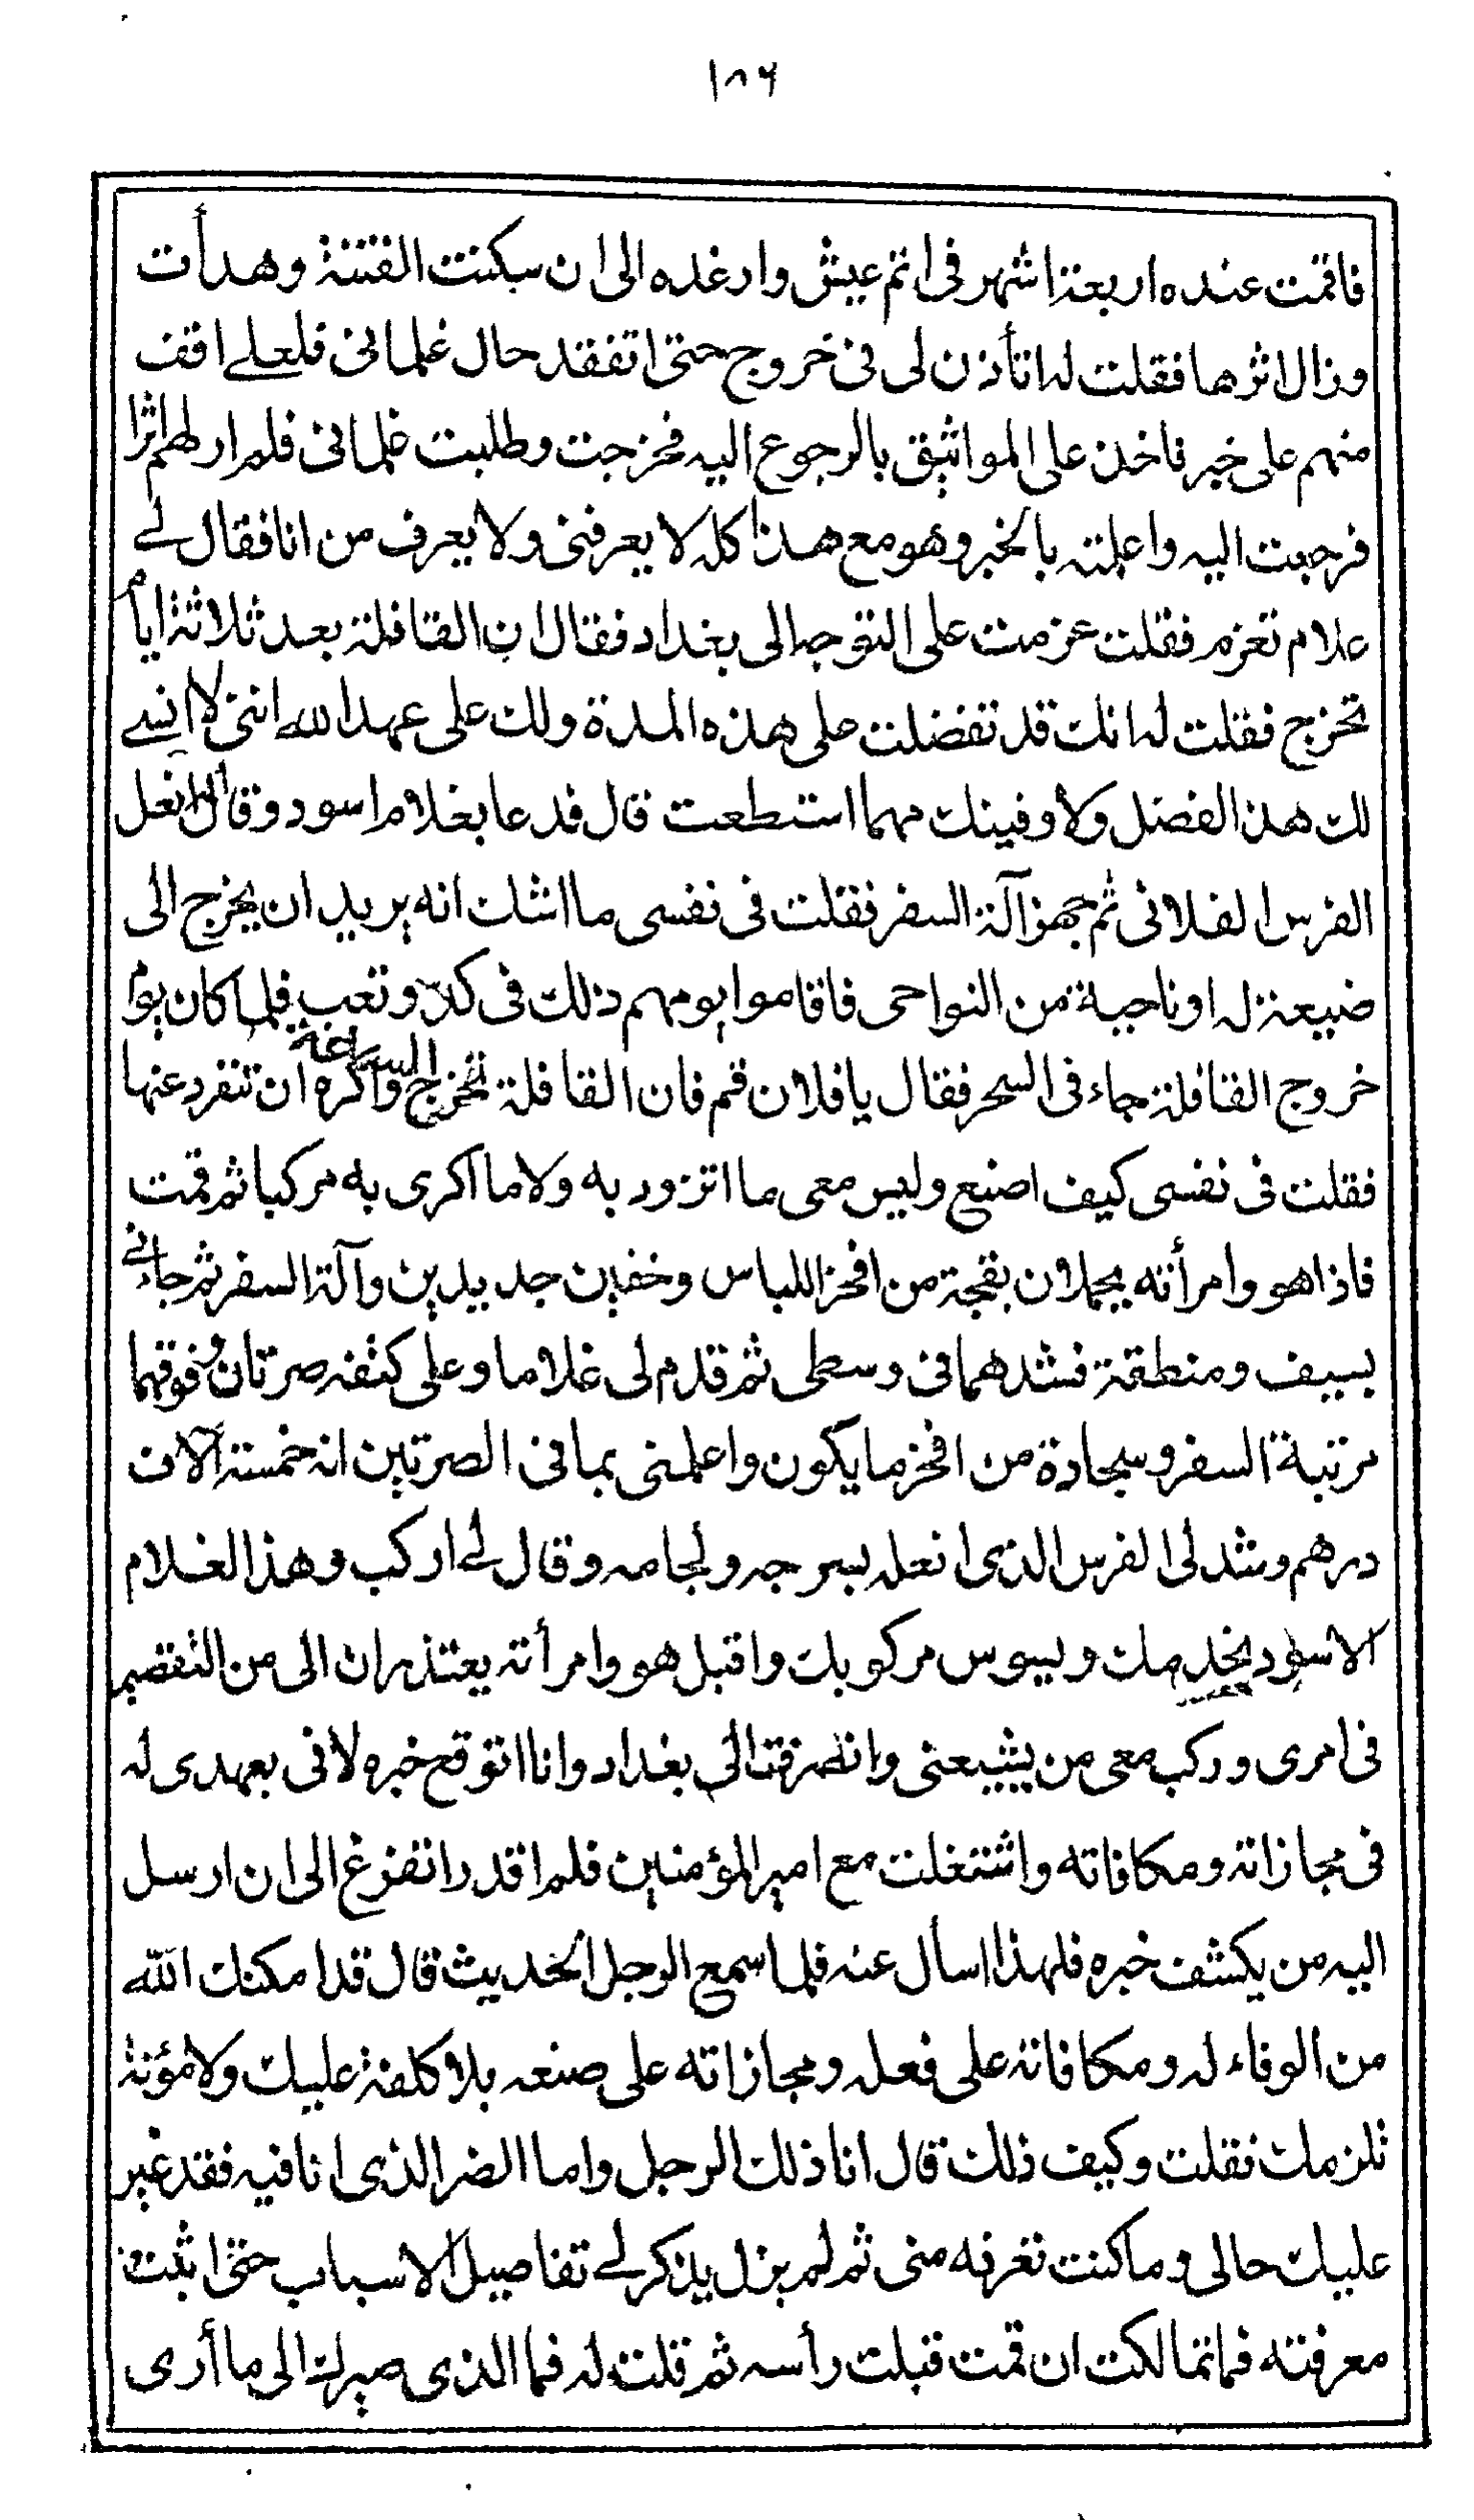 ١٨٦
فاقمت عنده اربعة اشهر فى اتم عيش وارغده الى ان سكنت الفتنة وهدأت
وزال اثرها فقلت له اتأذن لى فى خروج حتى اتفقد حال غلمانى فلعلى اقف
منهم على خبر فاخذ على المواثيق بالرجوع اليه فخرجت وطلبت غلمانى فلم ار لهم اثرا
فرجعت اليه واعلمته بالخبر وهو مع هذا كله لا يعرفنى ولا يعرف من انا فقال لى
علام تعزم فقلت عزمت على التوجه الى بغداد فقال ان القافلة بعد ثلاثة ايام
تخرج فقلت له انك قد تفضلت على هذه المدة ولك على عهد الله اننى لا انسى
لك هذا الفضل ولا وفينك مهما استطعت قال فدعا بغلام اسود وقال له انعل
الفرس الفلانى ثم جهز آلة السفر فقلت فى نفسى ما اشك انه يريد ان يخرج الى
ضيعة له او ناحية من النواحى فاقاموا يومهم ذلك فى كد وتعب فلما كان يوم
خروج القافلة جاء فى السحر فقال يا فلان قم فان القافلة تخرج الساعة واكره ان تنفرد عنها
فقلت فى نفسى كيف اصنع وليس معى ما اتزود به ولا ما اكرى به مركبا ثم قمت
فاذا هو وامرأته يحملان بقجة من افخر اللباس وخفين جديدين وآلة السفر ثم جاءنى
بسيف ومنطقة فشدهما فى وسطى ثم قدم لى غلاما وعلى كتفه صرتان وفوقهما
مرتبة السفر وسجادة من افخر ما يكون واعلمنى بما فى الصرتين انه خمسة آلاف
درهم وشد لى الفرس الذى انعله بسرجه ولجامه وقال لى اركب وهذا الغلام
الاسود يخدمك ويسوس مركوبك واقبل هو وامرأته يعتذران الى من التقصير
فى امرى وركب معى من يشيعنى وانصرفت الى بغداد وانا اتوقع خبره لافى بعهدى له
فى مجازاته ومكافاته واشتغلت مع امير المؤمنين فلم اقدر اتفرغ الى ان ارسل
اليه من يكشف خبره فلهذا اسأل عنه فلما سمع الرجل الحديث قال قد امكنك الله
من الوفاء له ومكافاته على فعله ومجازاته على صنعه بلا كلفة عليك ولا مؤنة
تلزمك فقلت وكيف ذلك قال انا ذلك الرجل واما الضر الذى انا فيه فقد غير
عليك حالى وما كنت تعرفه منى ثم لم يزل يذكر لى تفاصيل الاسباب حتى اثبت
معرفته فما تمالكت ان قمت قبلت رأسه ثم قلت له فما الذى صيرك الى ما أرى